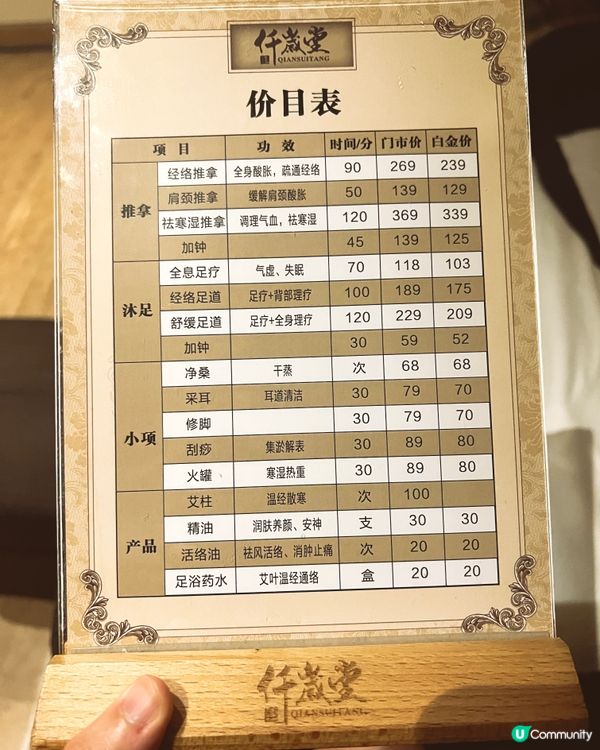 仟岁堂
QIANSUITANG
价目表
项 目 功 效 时间/分 门市价 白金价
推拿
经络推拿 全身酸胀，疏通经络 90 269 239
肩颈推拿 缓解肩颈酸胀 50 139 129
祛寒湿推拿 调理气血，祛寒湿 120 369 339
加钟 45 139 125
沐足
全息足疗 气虚、失眠 70 118 103
经络足道 足疗+背部理疗 100 189 175
舒缓足道 足疗+全身理疗 120 229 209
加钟 30 59 52
小项
净桑 干蒸 次 68 68
采耳 耳道清洁 30 79 70
修脚 30 79 70
刮痧 集淤解表 30 89 80
火罐 寒湿热重 30 89 80
产品
艾柱 温经散寒 次 100
精油 润肤养颜、安神 支 30 30
活络油 祛风活络、消肿止痛 次 20 20
足浴药水 艾叶温经通络 盒 20 20
仟岁堂
QIANSUITANG
U Community